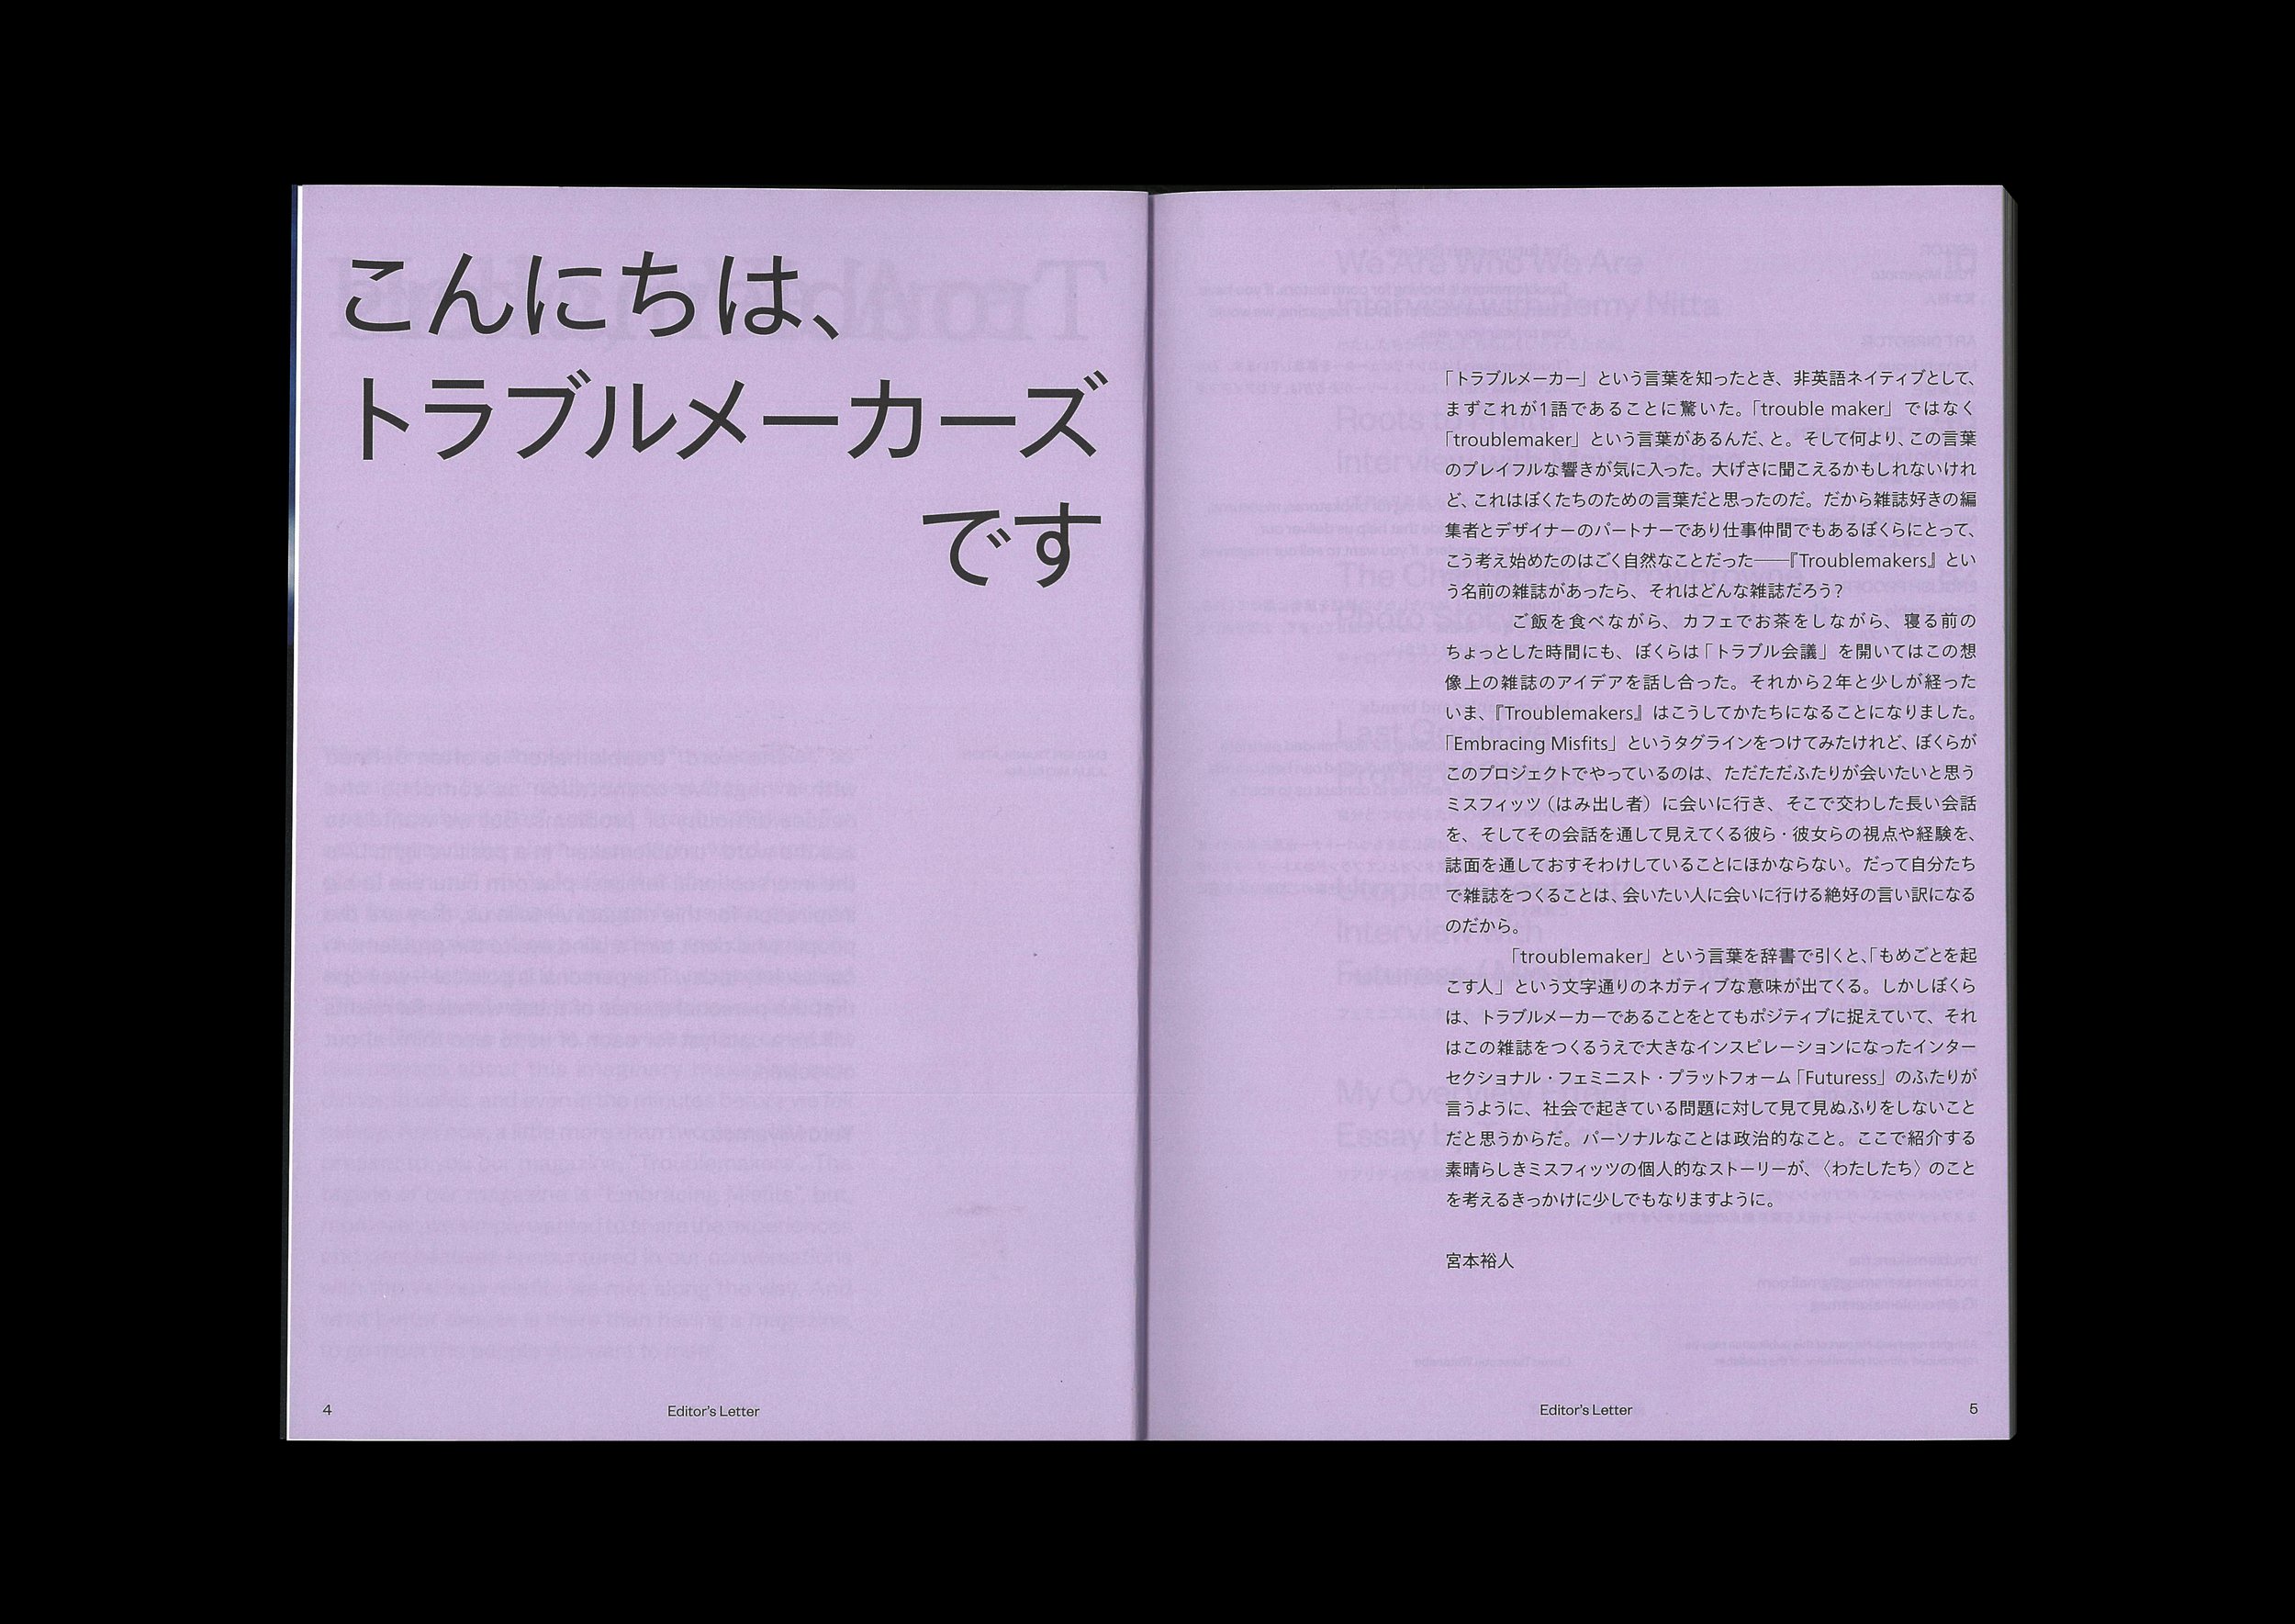 こんにちは、
トラブルメーカーズ
です
4
Editor's Letter
「トラブルメーカー」という言葉を知ったとき、非英語ネイティブとして、
まずこれが1語であることに驚いた。「trouble maker」ではなく
「troublemaker」という言葉があるんだ、と。そして何より、この言葉
のプレイフルな響きが気に入った。大げさに聞こえるかもしれないけれ
ど、これはぼくたちのための言葉だと思ったのだ。だから雑誌好きの編
集者とデザイナーのパートナーであり仕事仲間でもあるぼくらにとって、
こう考え始めたのはごく自然なことだった──『Troublemakers』とい
う名前の雑誌があったら、それはどんな雑誌だろう?
ご飯を食べながら、カフェでお茶をしながら、寝る前の
ちょっとした時間にも、ぼくらは「トラブル会議」を開いてはこの想
像上の雑誌のアイデアを話し合った。それから2年と少しが経った
いま、『Troublemakers』はこうしてかたちになることになりました。
「Embracing Misfits」というタグラインをつけてみたけれど、ぼくらが
このプロジェクトでやっているのは、ただただふたりが会いたいと思う
ミスフィッツ（はみ出し者）に会いに行き、そこで交わした長い会話
を、そしてその会話を通して見えてくる彼ら・彼女らの視点や経験を、
誌面を通しておすそわけしていることにほかならない。だって自分たち
で雑誌をつくることは、会いたい人に会いに行ける絶好の言い訳になる
のだから。
「troublemaker」という言葉を辞書で引くと、「もめごとを起
こす人」という文字通りのネガティブな意味が出てくる。しかしぼくら
は、トラブルメーカーであることをとてもポジティブに捉えていて、それ
はこの雑誌をつくるうえで大きなインスピレーションになったインター
セクショナル・フェミニスト・プラットフォーム「Futuress」のふたりが
言うように、社会で起きている問題に対して見て見ぬふりをしないこと
だと思うからだ。パーソナルなことは政治的なこと。ここで紹介する
素晴らしきミスフィッツの個人的なストーリーが、〈わたしたち〉のこと
を考えるきっかけに少しでもなりますように。
宮本裕人
Editor's Letter
5